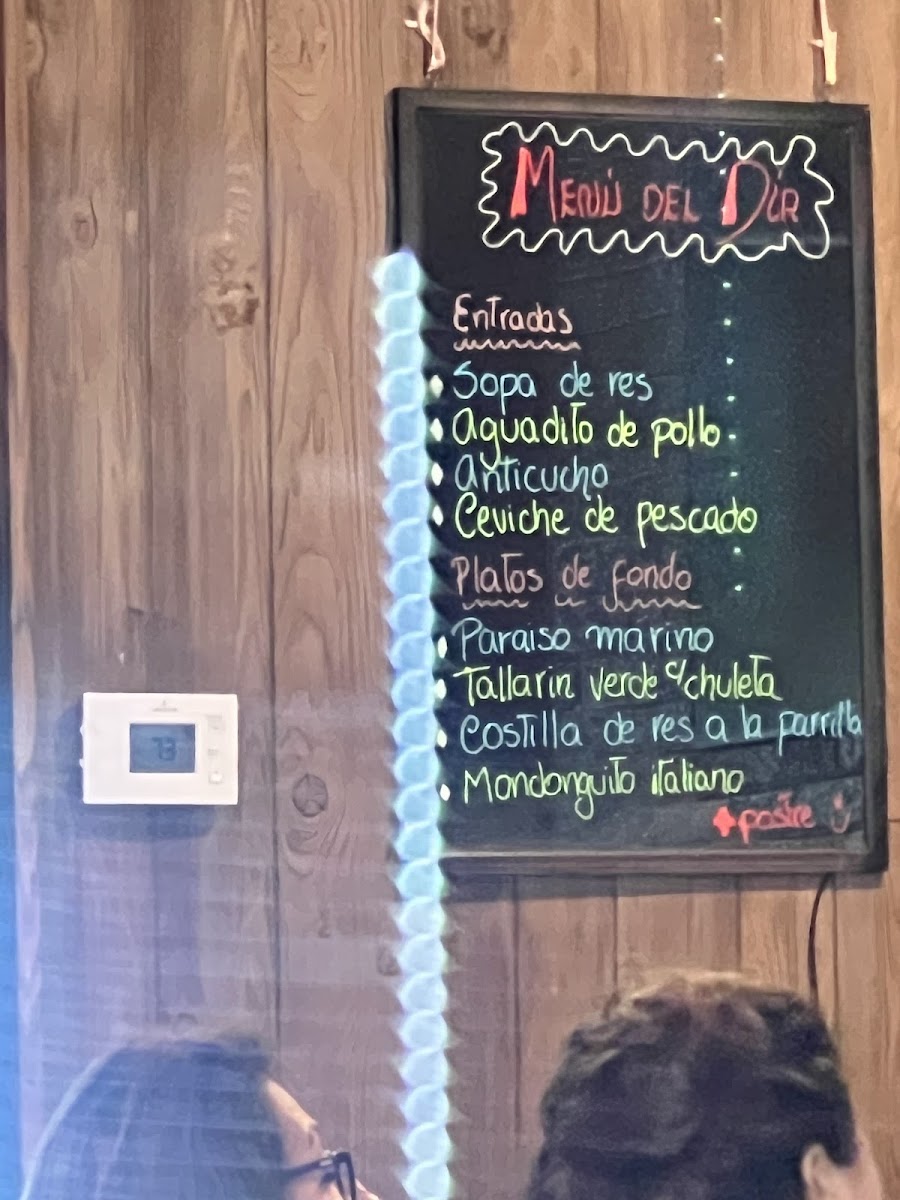 MENÚ DEL DÍA
Entradas
Sopa de res
Aguadito de pollo
Anticucho
Ceviche de pescado
Platos de fondo
Paraiso marino
Tallarin verde c/chuleta
Costilla de res a la parrilla
Mondonguito italiano
+postre
73